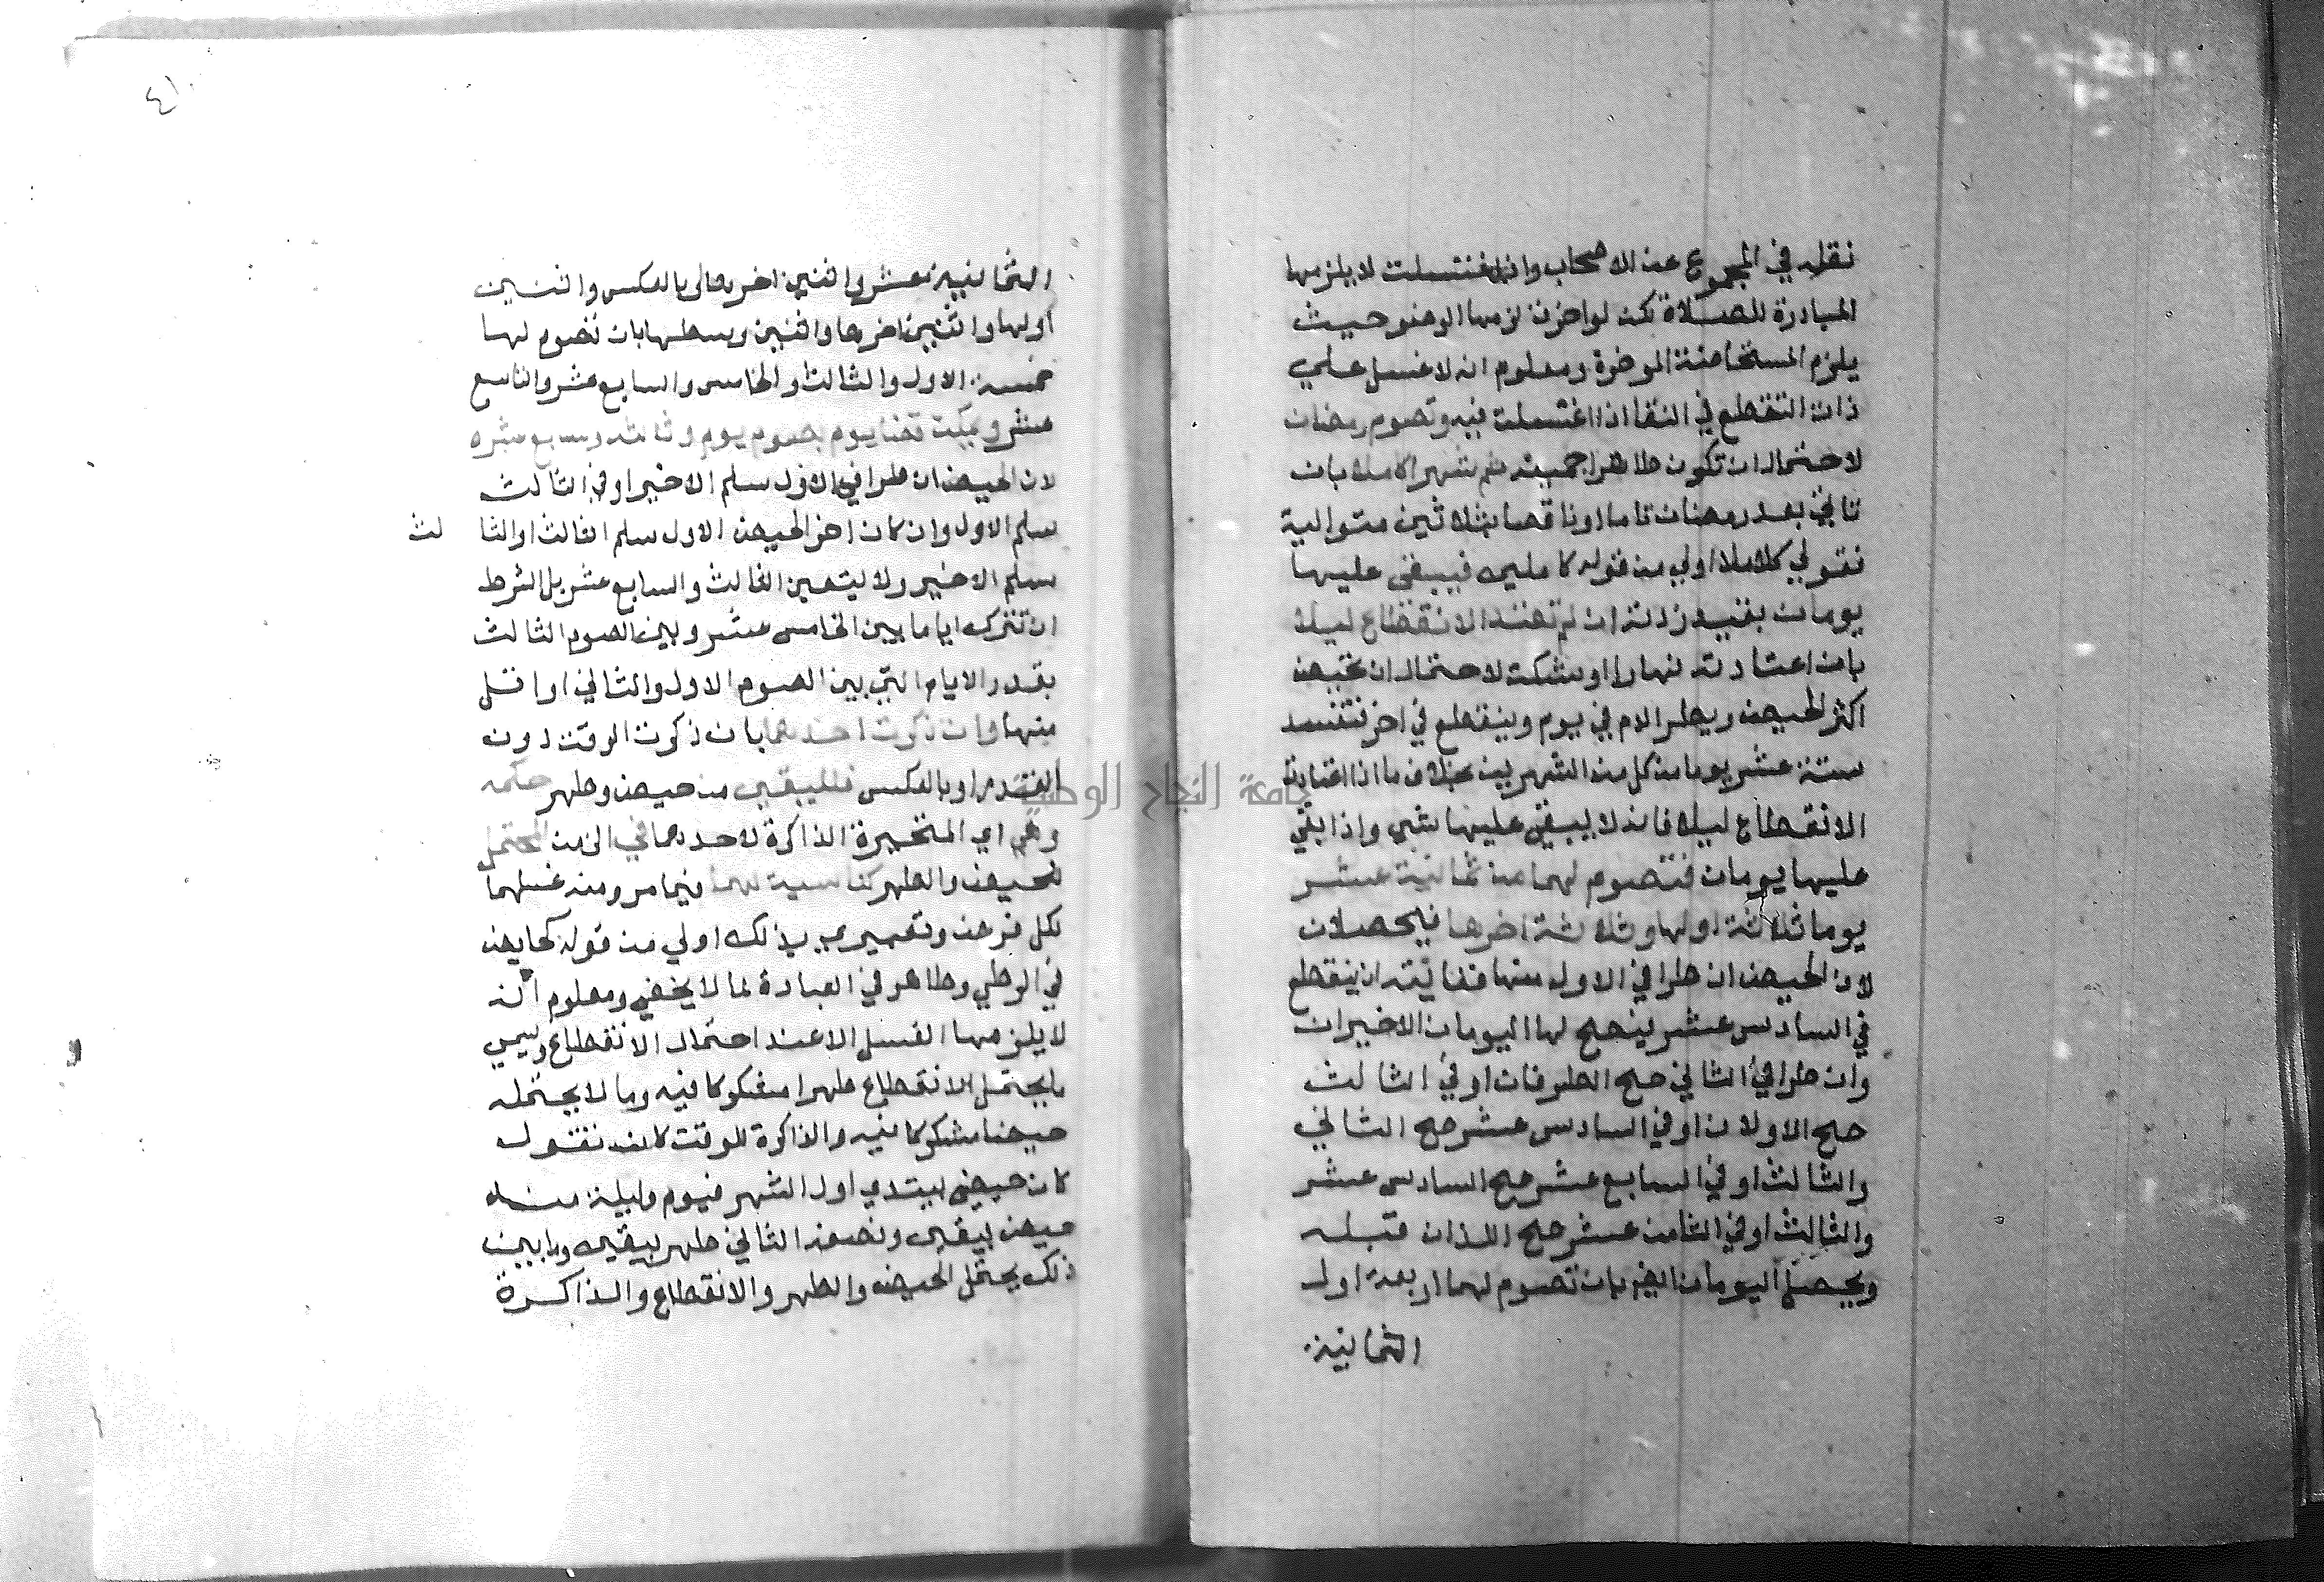 نقله في المجموع عن الاصحاب واذا اغتسلت لا يلزمها
المبادرة للصلاة لكن لو اخرت لزمها الوضو حيث
يلزم المستحاضة الموخرة ومعلوم انه لا غسل علي
ذات التقطع في النقا اذا اغتسلت فيه وتصوم رمضان
لاحتمال ان تكون طاهرا جميعه ثم شهرا كاملا بان
تاتي بعد رمضان تاما او ناقصا بثلاثين متوالية
فقولي كاملا اولي من قوله كاملين فيبقي عليها
يومان بقيد زدته ان لم تعتد الانقطاع ليلا
بان اعتادته نهارا او شكت لاحتمال ان تحيض
اكثر الحيض ويطرا الدم في يوم وينقطع في اخر فتفسد
ستة عشر يوما من كل من الشهرين بخلاف ما اذا اعتادت
الانقطاع ليلا فانه لا يبقي عليها شي واذا بقي
عليها يومان فتصوم لهما من ثمانية عشر
يوما ثلاثة اولها وثلاثة اخرها فيحصلان
لان الحيض ان طرا في الاول منها فغايته ان ينقطع
في السادس عشر فيصح لها اليومان الاخيران
وان طرا في الثاني صح الطرفان او في الثالث
صح الاولان او في السادس عشر صح الثاني
والثالث او في السابع عشر صح السادس عشر
والثالث او في الثامن عشر صح اللذان قبله
ويحصل اليومان ايضا بان تصوم لهما اربعة اول
الثمانية
٤١
الثمانية عشر واثنين اخرها او بالعكس واثنين
اولها واثنين اخرها واثنين وسطها بان تصوم لها
خمسة الاول والثالث والخامس والسابع عشر والتاسع
عشر ويمكن قضا يوم بصوم يوم وثالثه وسابع عشره
لان الحيض ان طرا في الاول سلم الاخير او في الثالث
سلم الاول وان كان اخر الحيض الاول سلم الثالث او الثا لث
سلم الاخير ولا يتعين الثالث والسابع عشر بل الشرط
ان تترك اياما بين الخامس عشر وبين الصوم الثالث
بقدر الايام التي بين الصوم الاول والثاني او اقل
منها وان ذكرت احدهما بان ذكرت الوقت دون
القدر او بالعكس فلليقين من حيض وطهر حكمه
وهي اي المتحيرة الذاكرة لاحدهما في الزمن المحتمل
للحيض والطهر كناسية لهما فيما مر ومنه غسلهما
لكل فرض وتعبيري بذلك اولي من قوله كحايض
في الوطي وطاهر في العبادة لما لا يخفي ومعلوم انه
لا يلزمها الغسل الا عند احتمال الانقطاع ويسمي
ما يحتمل الانقطاع طهرا مشكوكا فيه وما لا يحتمله
حيضا مشكوكا فيه والذاكرة للوقت كان تقول
كان حيضي يبتدي اول الشهر فيوم وليلة منه
حيض بيقين ونصفه الثاني طهر بيقين وما بين
ذلك يحتمل الحيض والطهر والانقطاع والذاكرة
جامعة النجاح الوطنية